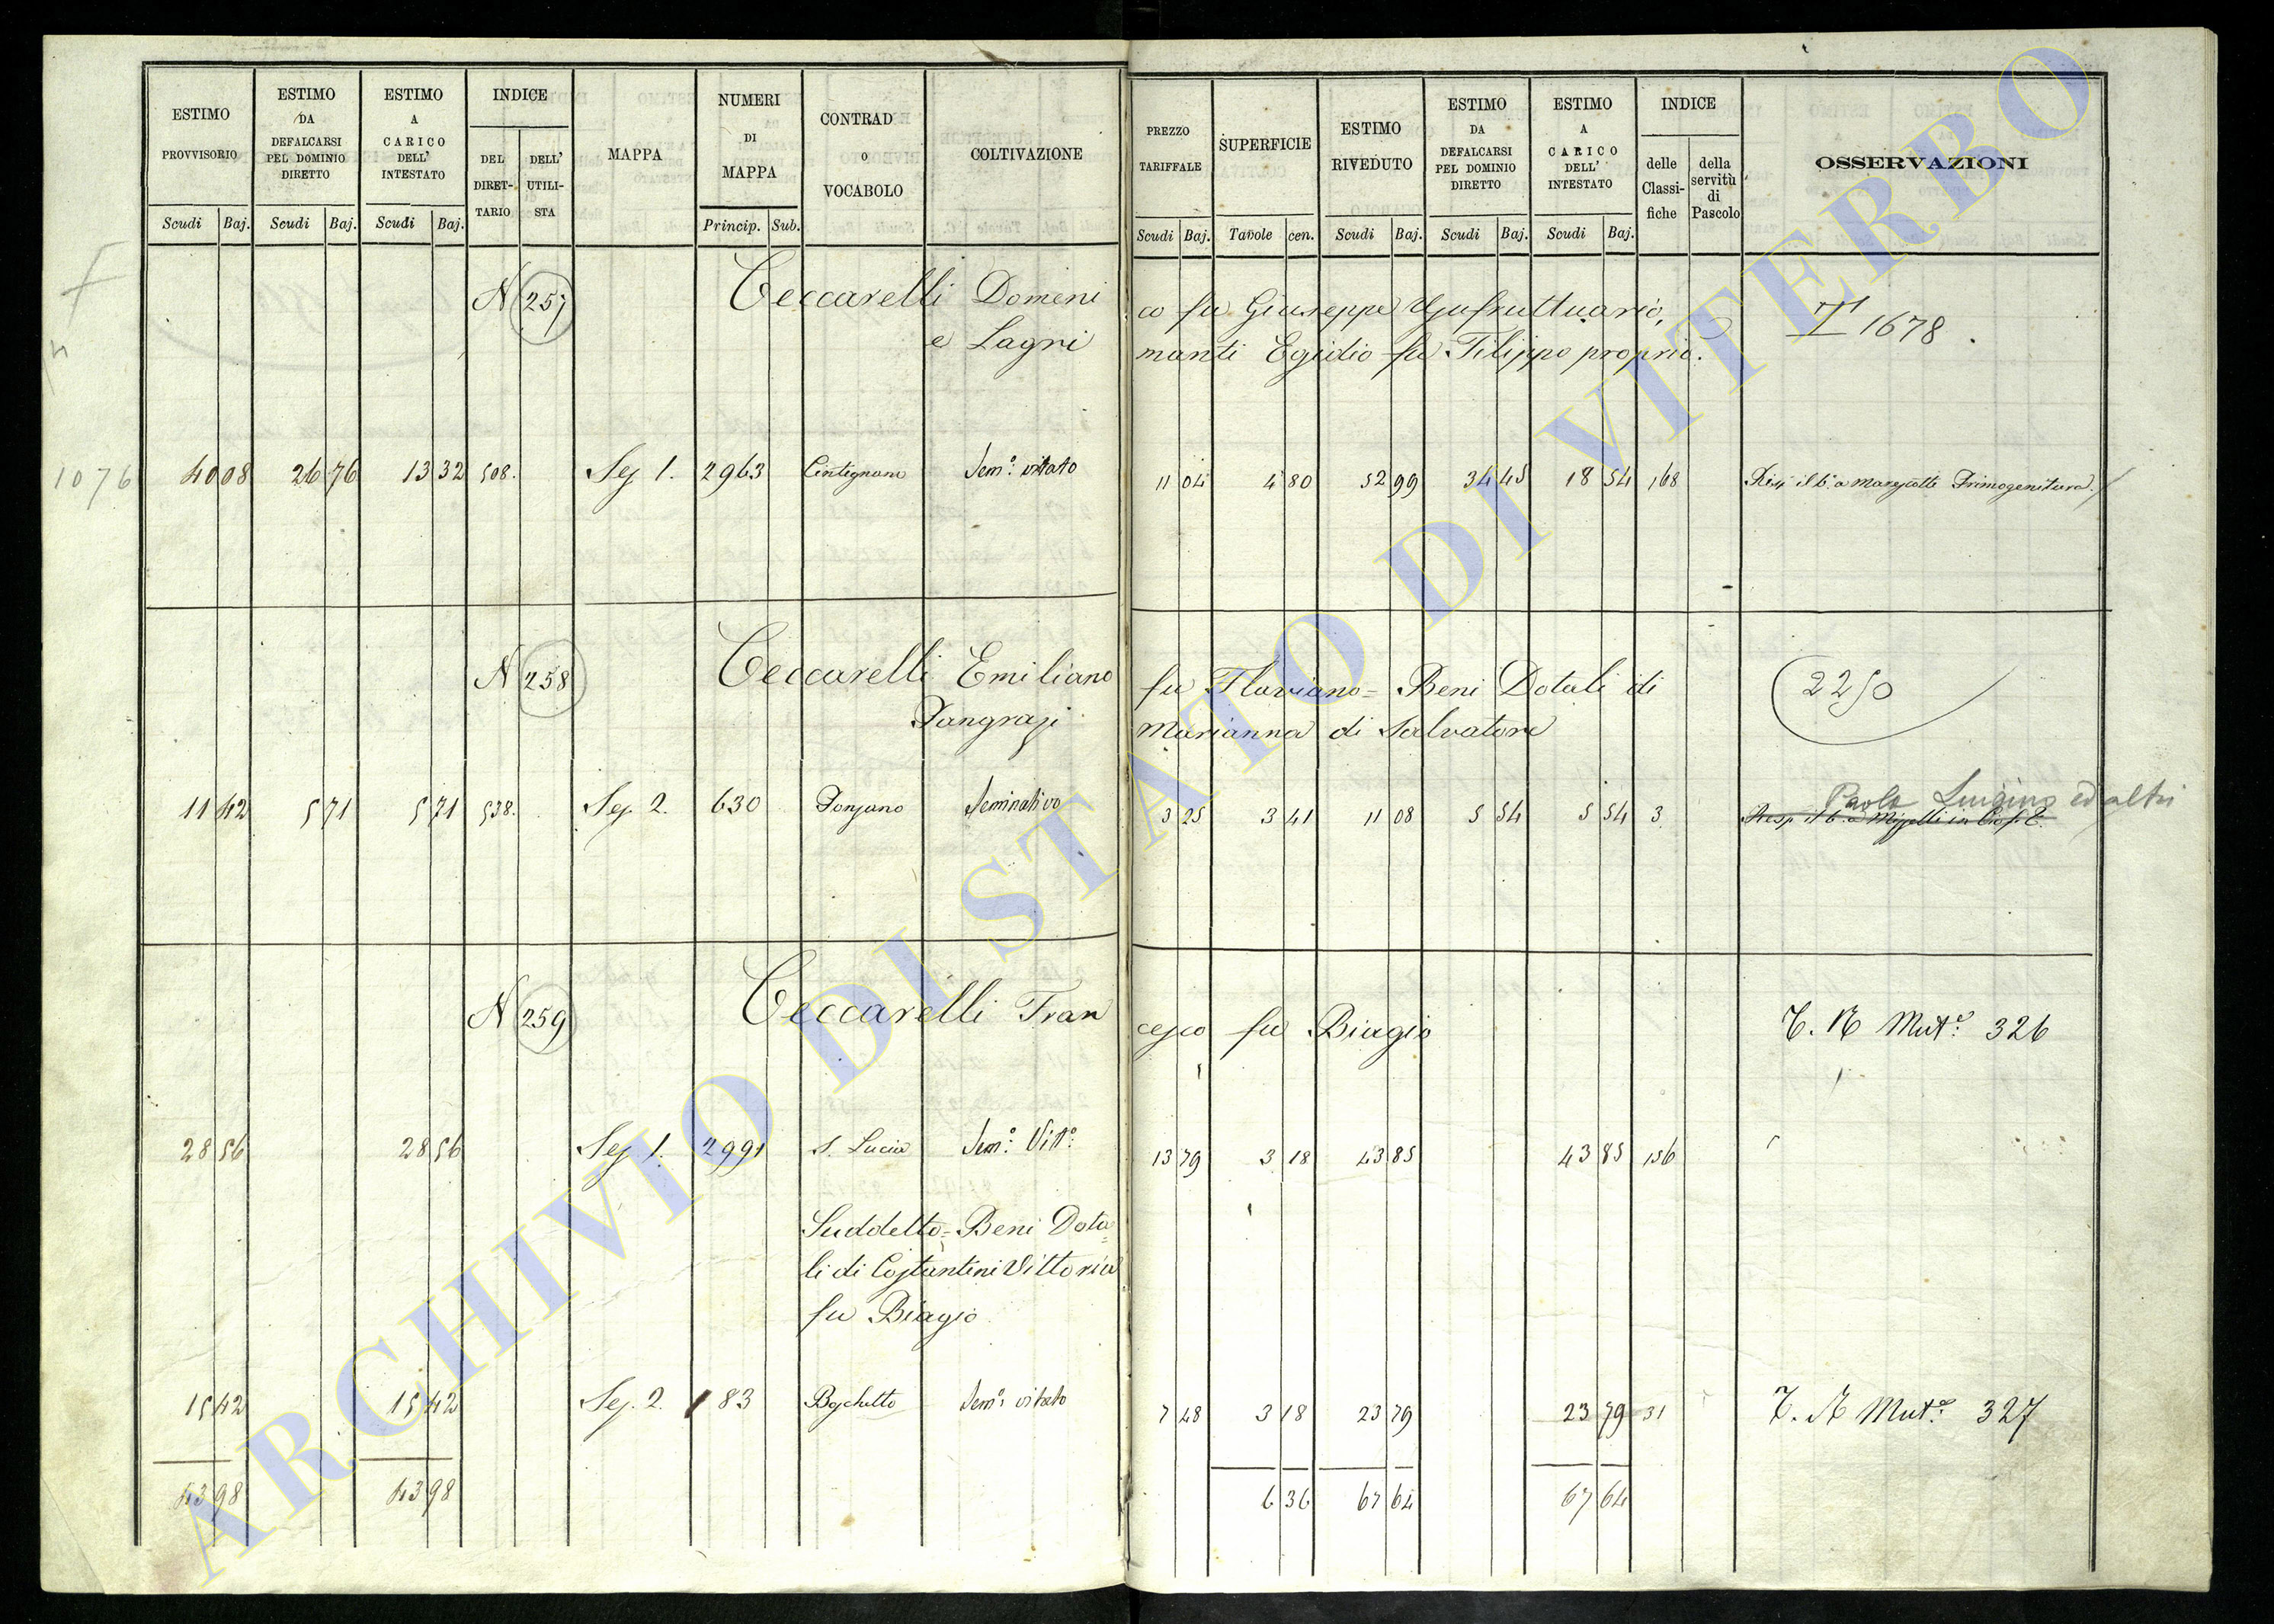 ESTIMO PROVVISORIO Scudi Baj.
ESTIMO DA DEFALCARSI PEL DOMINIO DIRETTO Scudi Baj.
ESTIMO A CARICO DELL' INTESTATO Scudi Baj.
INDICE DEL DIRET-TARIO DELL' UTILI-STA
MAPPA
NUMERI DI MAPPA Princip. Sub.
CONTRAD O VOCABOLO
COLTIVAZIONE
PREZZO TARIFFALE Scudi Baj.
SUPERFICIE Tavole cen.
ESTIMO RIVEDUTO Scudi Baj.
ESTIMO DA DEFALCARSI PEL DOMINIO DIRETTO Scudi Baj.
ESTIMO A CARICO DELL' INTESTATO Scudi Baj.
INDICE delle Classi-fiche della servitù di Pascolo
OSSERVAZIONI
N 257 Ceccarelli Domeni co fu Giuseppe Usufruttuario, 1678
e Lagri manti Egidio fu Filippo proprio.
1076 40 08 26 76 13 32 508. Sez 1. 2963 Centignano Sem.º vitato 11 04 4 80 52 99 34 45 18 54 168 Ris.e il b.º a Marescotti Primogenitura
N 258 Ceccarelli Emiliano fu Flaviano = Beni Dotali di 2250
Pangrazi Marianna di Salvatore
Paolo Luigino ed altri
11 42 5 71 5 71 538. Sez 2. 630 Seminativo 3 25 3 41 11 08 5 54 5 54 3
N 259 Ceccarelli Fran cesco fu Biagio T. R Mut.e 326
28 56 28 56 Sez 1. 2991 S. Lucia Sem.º Vit.º 13 79 3 18 43 85 43 85 156
Suddetto = Beni Dota=
li di Costantini Vittoria
fu Biagio
15 42 15 42 Sez. 2. 183 Boschetto Sem.º vitato 7 48 3 18 23 79 23 79 31 T. R Mut.e 327
43 98 43 98 6 36 67 64 67 64
ARCHIVIO DI STATO DI VITERBO